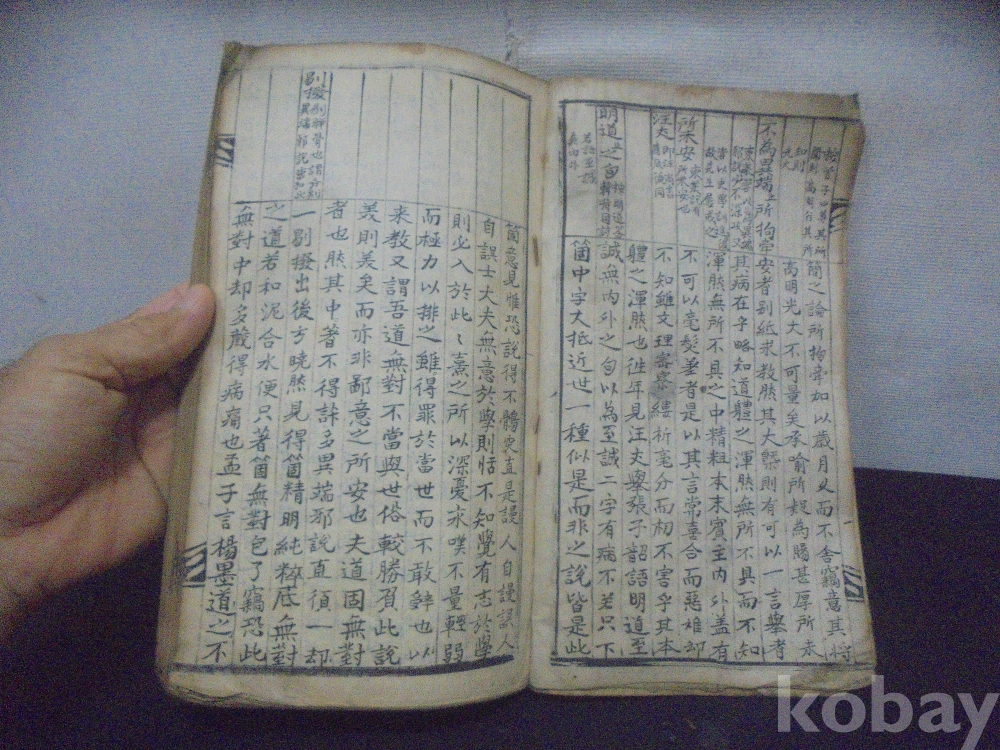 簡之論所拘牽加以歲月久而不舍竊意其將
高明光大不可量矣承喻所疑為賜甚厚所未
不為異端所拘牽
安者別紙求教然其大槩則有可以一言舉者
其病在乎略知道體之渾然無所不具而不知
渾然無所不具之中精粗本末賓主內外蓋有
所未安
不可以毫髮差者是以其言常喜合而惡雖却
汪丈
不知雖文理密察縷析毫分而初不害乎其本
體之渾然也往年見汪丈舉張子韶語明道至
明道之句
誠無內外之句以為至誠二字有病不若只下
箇中字大抵近世一種似是而非之說皆是此
箇意見惟恐說得不鶻突直是謾人自謾誤人
自誤士大夫無意於學則恬不知覺有志於學
則必入於此〻熹之所以深憂永嘆不量輕弱
而極力以排之雖得罪於當世而不敢辭也以
來教又謂吾道無對不當與世俗較勝負此說
美則美矣而亦非鄙意之所安也夫道固無對
者也然其中著不得許多異端邪說直須一却
剔撥
一剔撥出後方曉然見得箇精明純粹底無對
之道若和泥合水便只著箇無對包了竊恐此
無對中却多藏得病痛也孟子言楊墨道之不
kobay